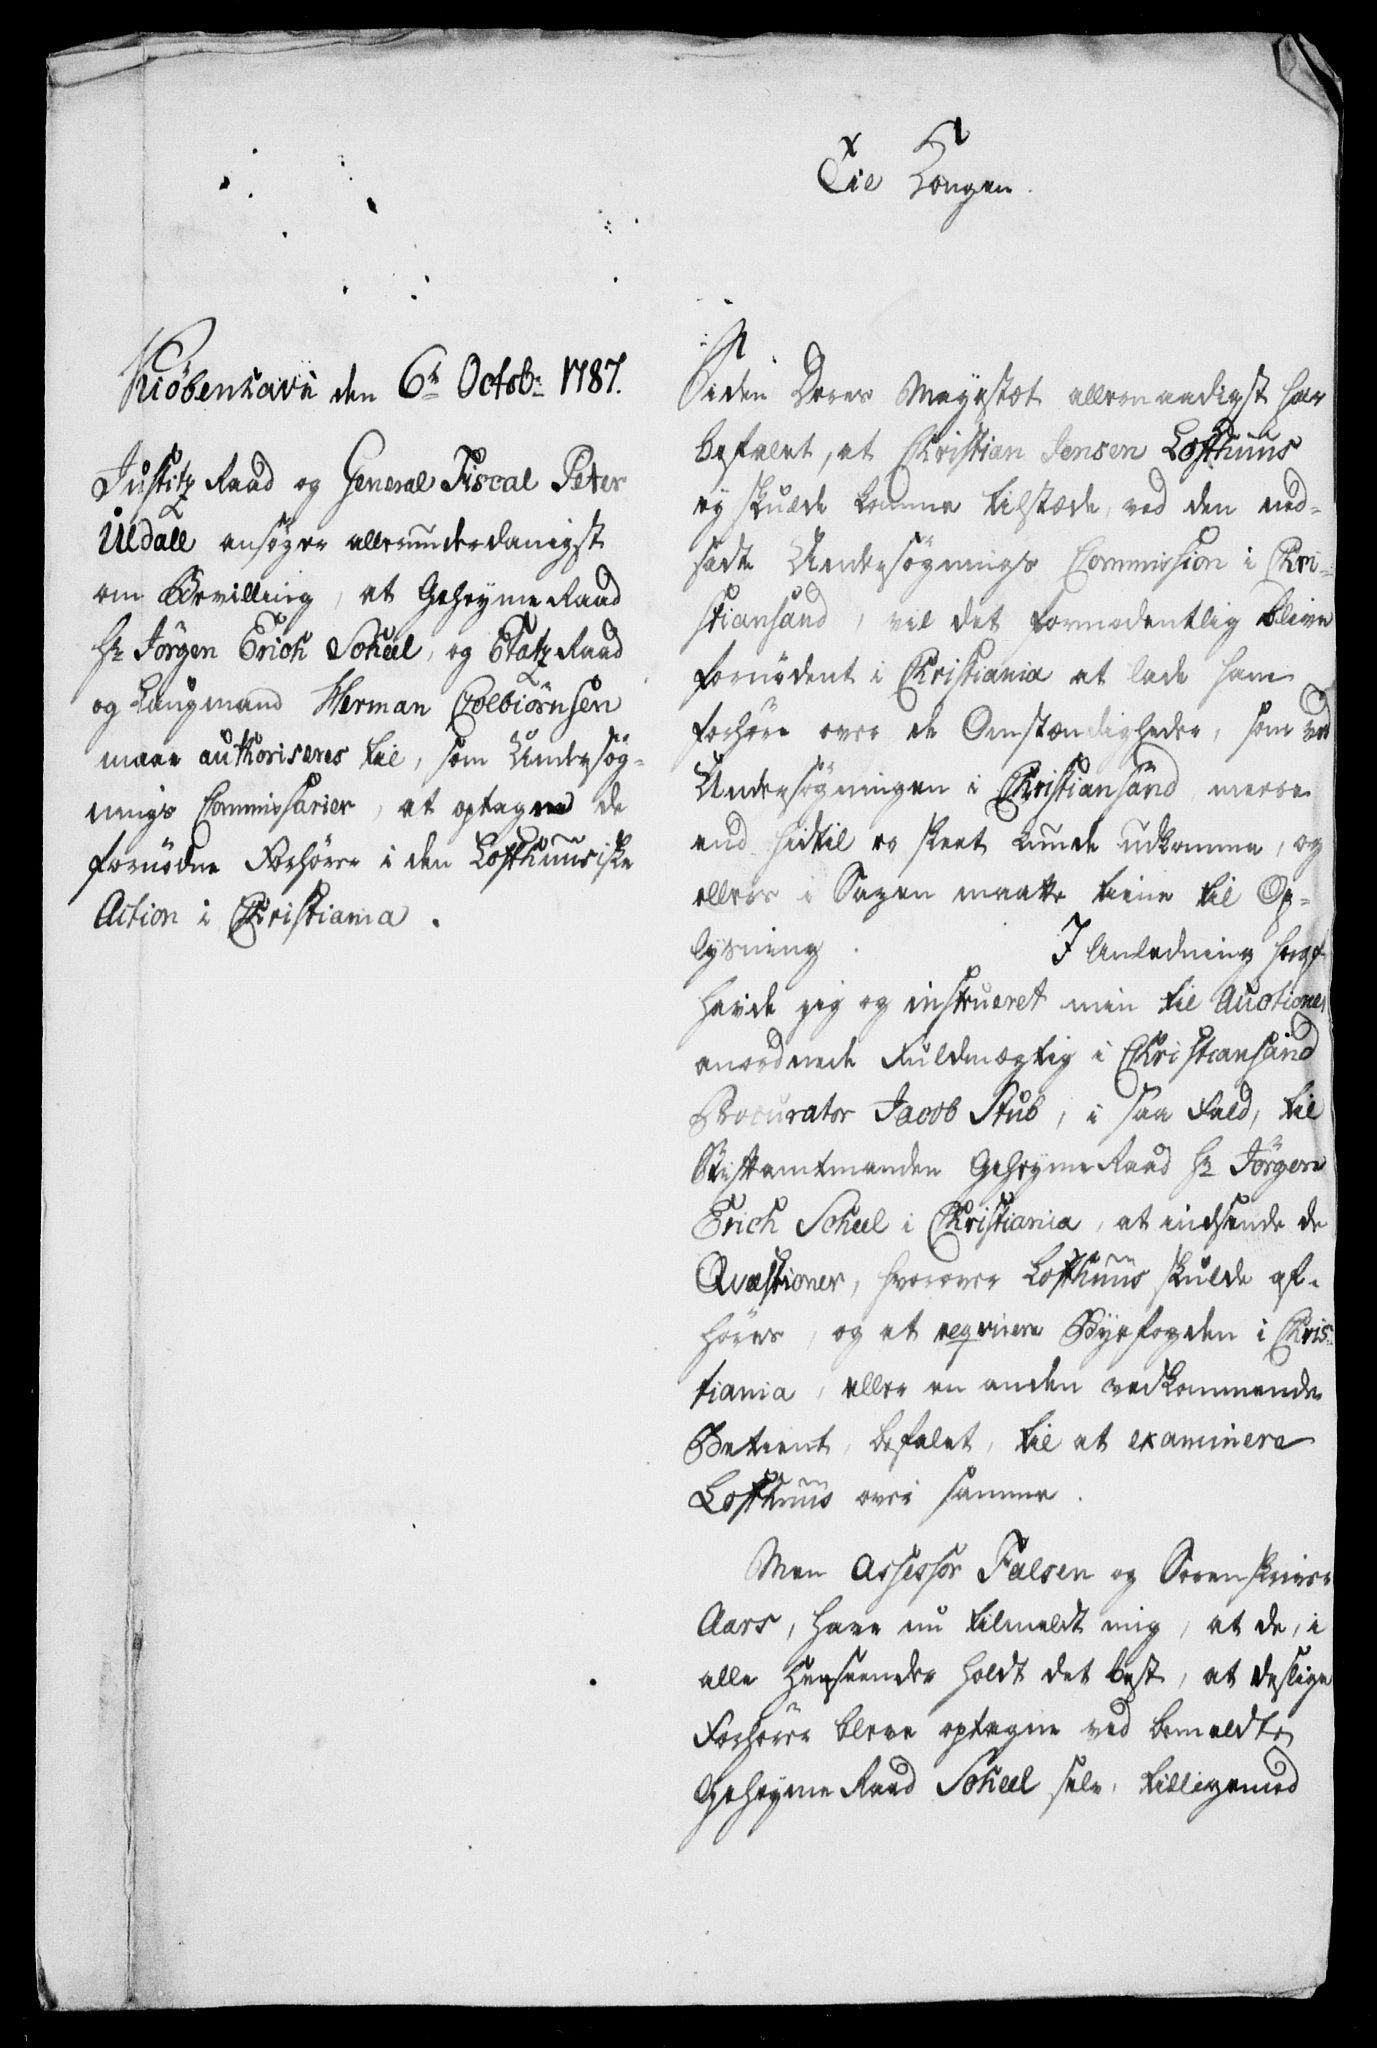 Til Kongen.
Kiöbenhavn den 6te Octob: 1787.
Justitz Raad og General Fiscal Peter
Uldall ansøger allerunderdanigst
om Bevilling, at Geheyme Raad
Hr Jörgen Erich Scheel, og Etatz Raad
og Laugmand Herman Colbiörnsen
maae authoriseres til, som Undersøg-
nings Commissarier, at optagne de
fornødne Forhörer i den Lofthuusiske
Action i Christiania.
Siden Deres Mayestæt allernaadigst har
befalet, at Christian Jensen Lofthuus
ey skulde komme tilstæde, ved den ned-
satte Undersøgnings Commission i Chri-
stiansand, vil det formodentlig blive
fornødent i Christiania at lade ham
forhöre over de Omstændigheder, som ved
Undersøgningen i Christiansand, meere
end hidtil er skeet kunde udkomme, og
ellers i Sagen maatte tiene til Op-
lysning. I Anledning heraf
havde jeg og instrueret min til Auctioner
anordnede Fuldmægtig i Christiansand
Procurator Jacob Stub, i saa Fald, til
Stiftamtmanden Geheyme Raad Hr Jörgen
Erich Scheel i Christiania, at indsende de
Qvæstioner, hvorover Lofthuus skulde af-
höres, og at reqvirere Byefogden i Chris-
tiania, eller en anden vedkommende
Betient, befalet, til at examinere
Lofthuus over samme.
Men Assessor Falsen og Sorenskriver
Aars, have nu tilmeldt mig, at de, i
alle Henseender holdt det best, at deslige
Forhörer bleve optagne ved bemeldte
Geheyme Raad Scheel selv, tilligemed